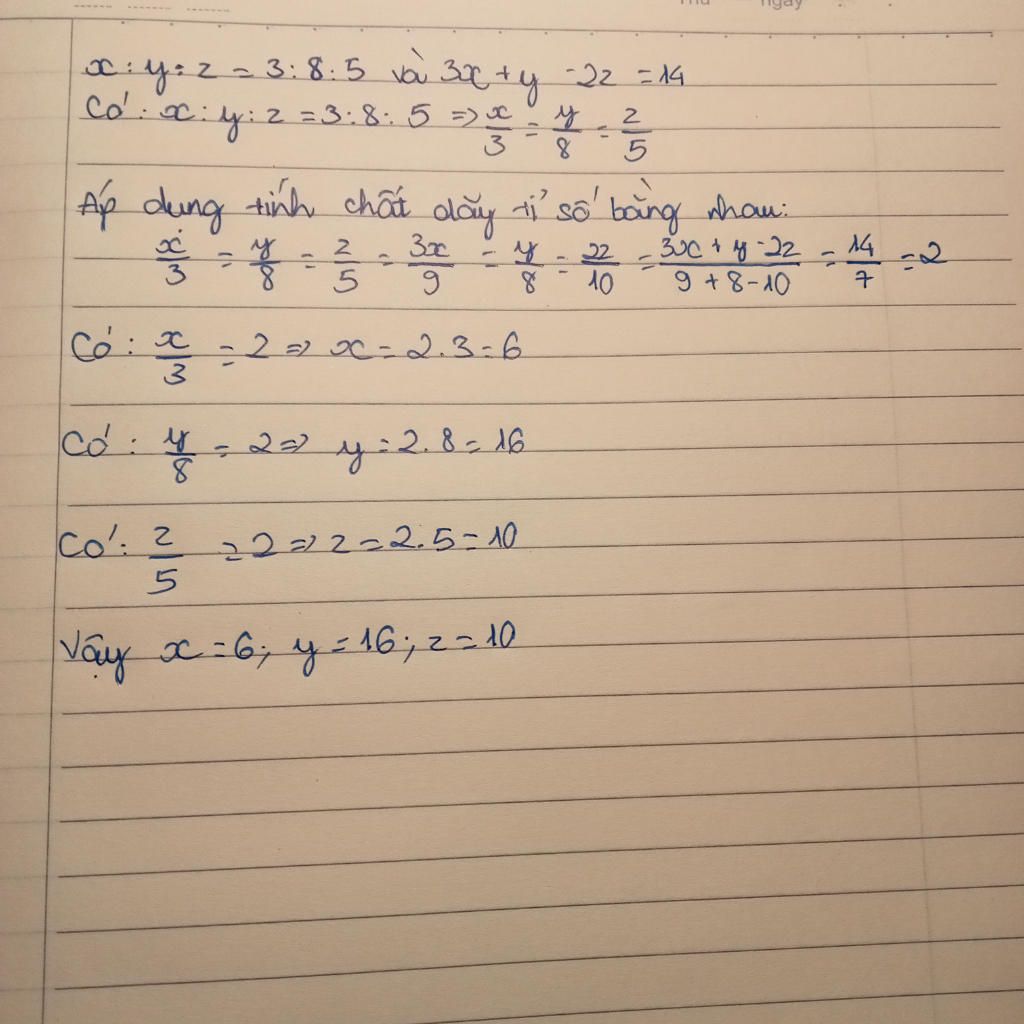 Thứ ngày
x : y : z = 3 : 8 : 5 và 3x + y - 2z = 14
Có : x : y : z = 3 : 8 : 5 => x/3 = y/8 = z/5
Áp dung tính chất dãy tỉ số bằng nhau:
x/3 = y/8 = z/5 = 3x/9 = y/8 = 2z/10 = (3x + y - 2z)/(9 + 8 - 10) = 14/7 = 2
Có : x/3 = 2 => x = 2.3 = 6
Có : y/8 = 2 => y = 2.8 = 16
Có : z/5 = 2 => z = 2.5 = 10
Vậy x = 6; y = 16; z = 10